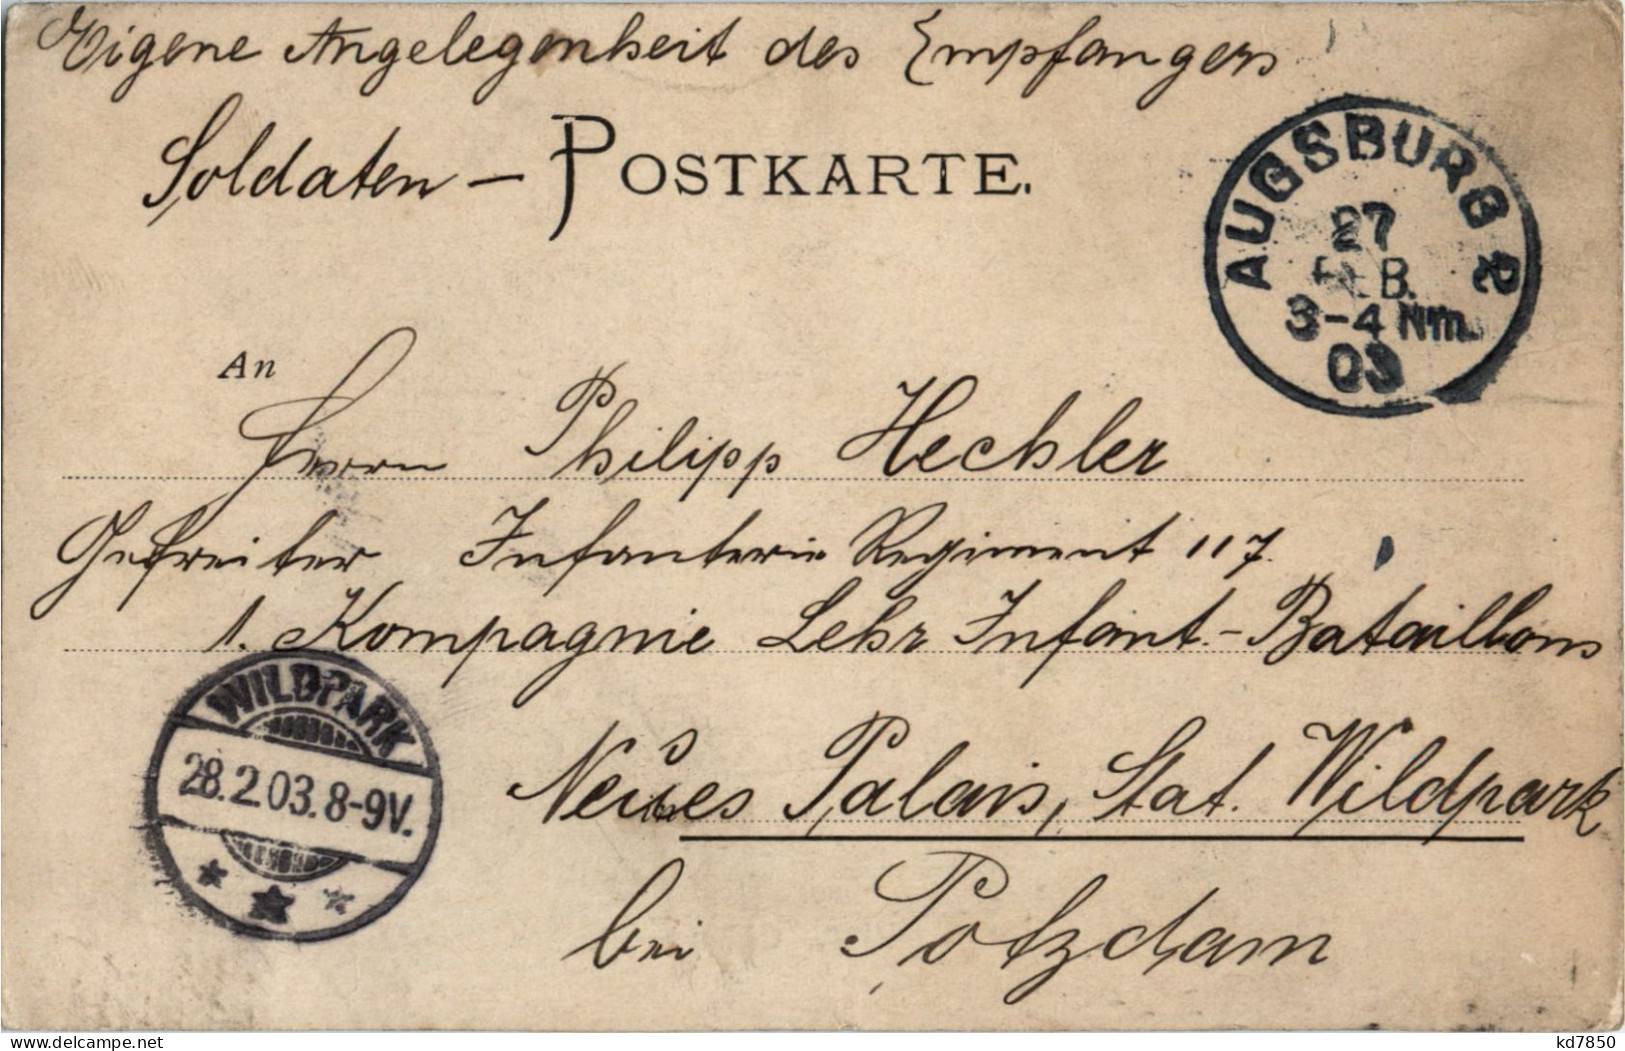 Eigene Angelegenheit des Empfangers
Soldaten – POSTKARTE.
AUGSBURG 2
27
FEB.
3-4 Nm.
03
An
Herrn Philipp Hechler
Gefreiter Infanterie Regiment 117.
1. Kompagnie Lehr Infant.-Bataillons
WILDPARK
28.2.03.8-9V.
Neues Palais, Stat. Wildpark
bei Potzdam
kd7850